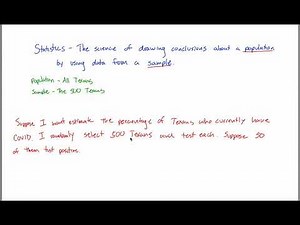 Statistics - The science of drawing conclusions about a population
by using data from a sample.
Population - All Texans
Sample - The 500 Texans
Suppose I want estimate the percentage of Texans who currently have
Covid. I randomly select 500 Texans and test each. Suppose 30
of them test positive.